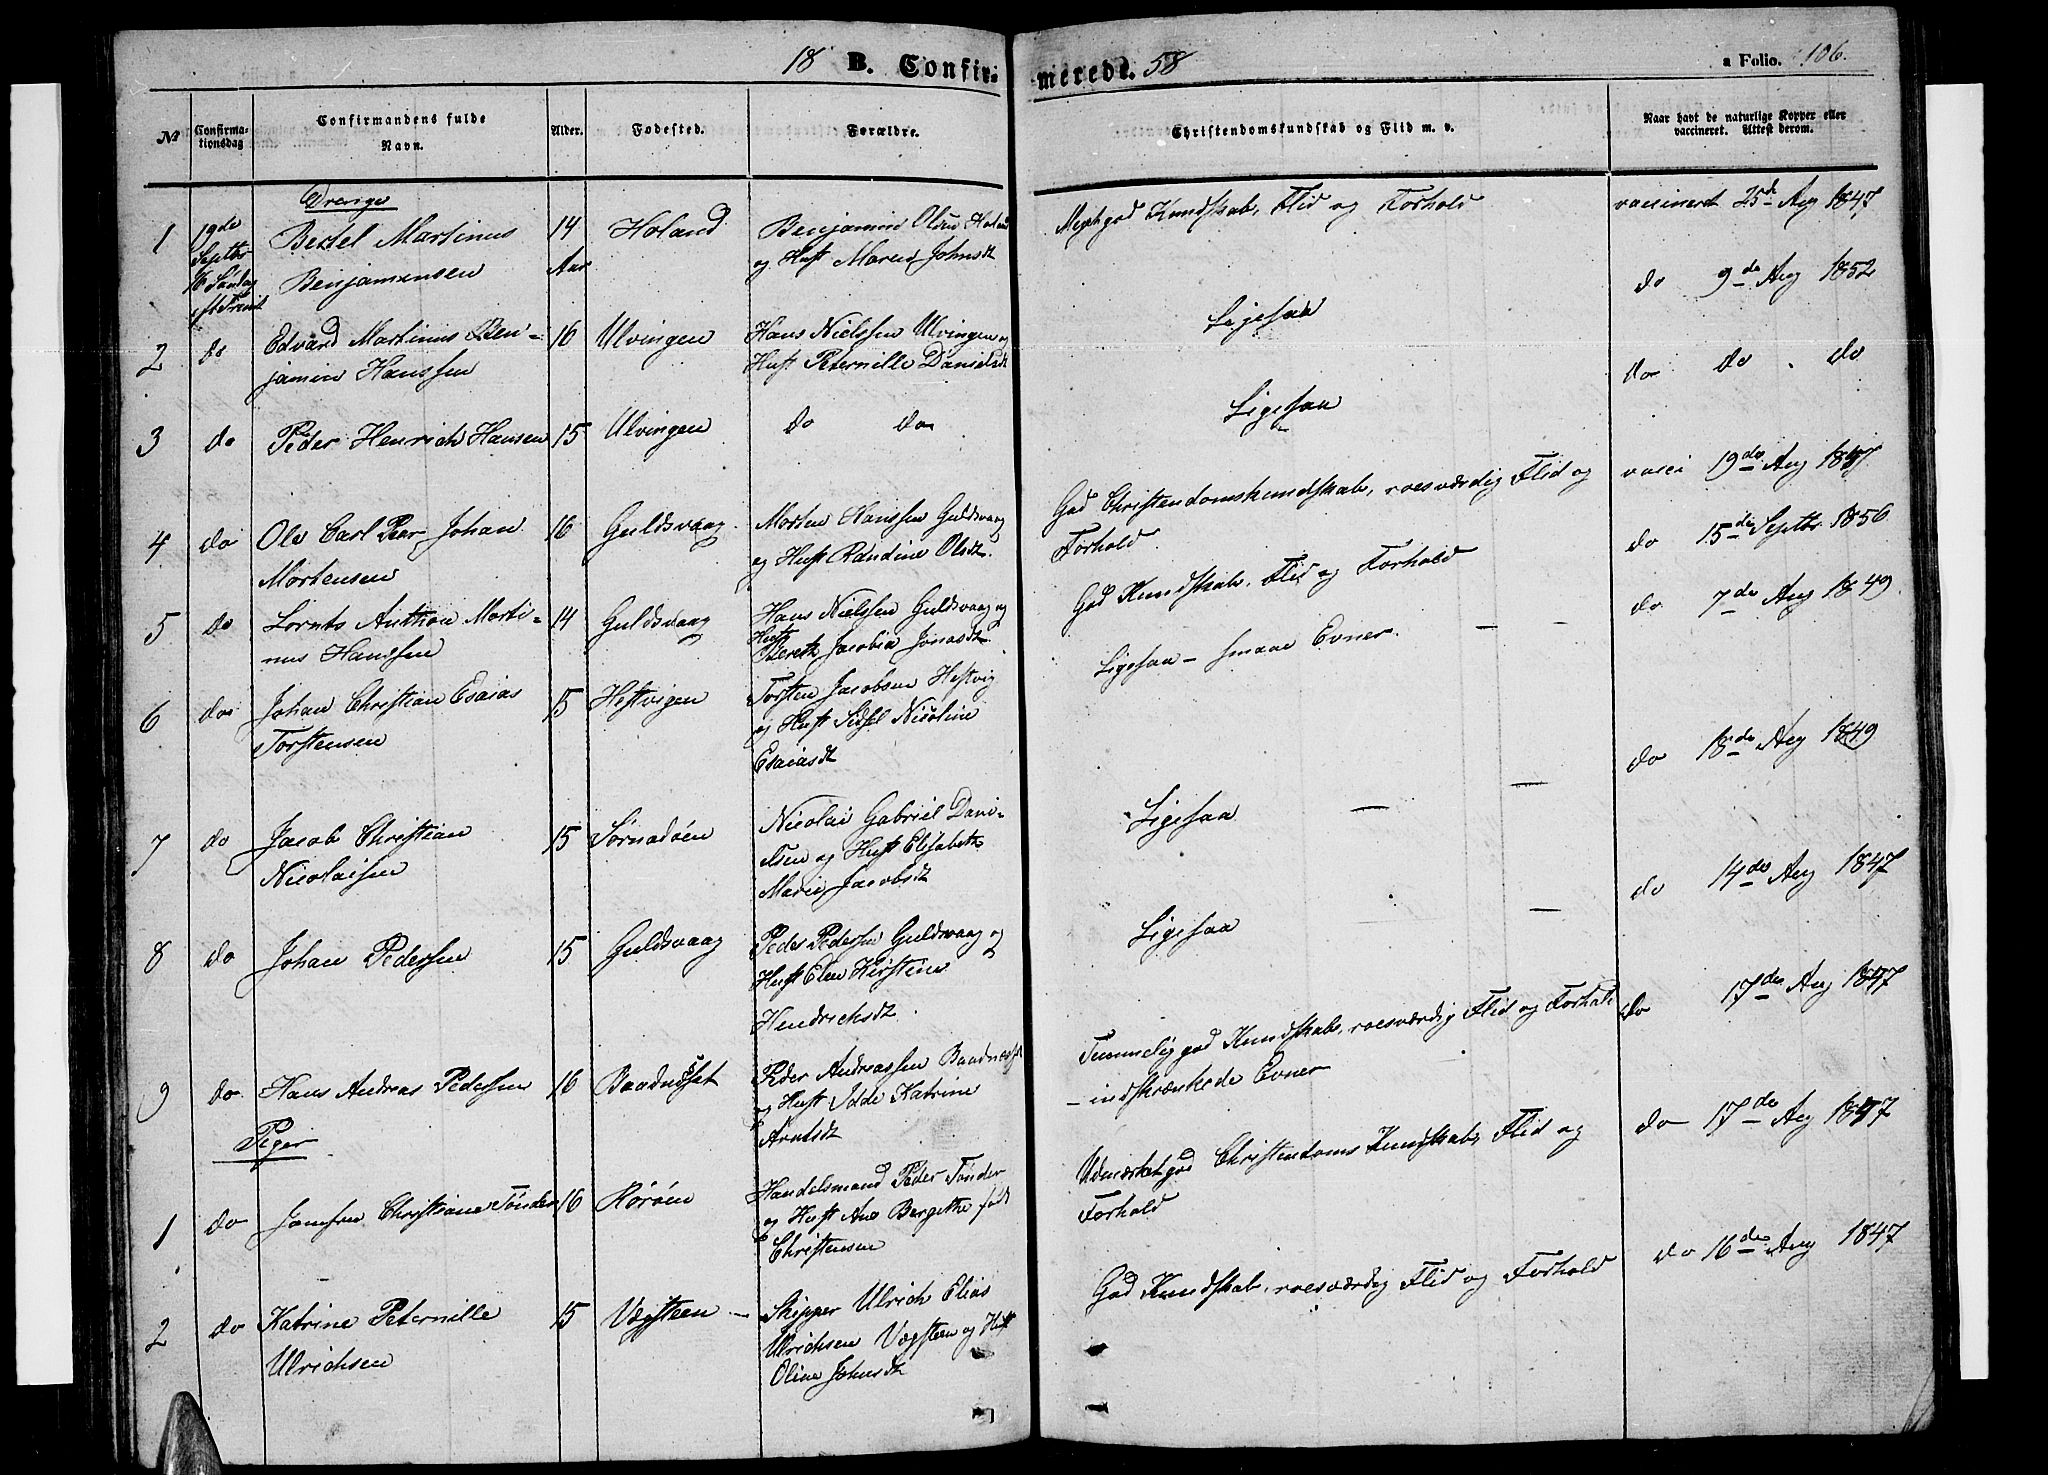 18 B. Confir- merede. 58 a Folio. 106.
No Confirma-tionsdag Confirmandens fulde Navn. Alder. Fødested. Forældre. Christendomskundskab og Flid m. v. Naar havt de naturlige Kopper eller vaccineret. Attest derom.
Drenge
1 19de Septbr Bertel Martinus 14 Holand Benjamin Olsen Holand Meget god Kundskab, Flid og Forhold vaccineret 25de Aug 1847
16 Søndag Benjaminsen Aar og Hust Maren Johnsdt
eft Trinit
2 do Edvard Martinus Ben- 16 Ulvingen Hans Nielssen Ulvingen og Ligesaa do 9de Aug 1852
jamin Hanssen Hust Peternille Danielsdt
3 do Peder Henrich Hansen 15 Ulvingen do do Ligesaa do do do
4 do Ole Carl Peer Johan 16 Guldsvaag Morten Hanssen Guldsvaag God Christendomskundskab, roesværdig Flid og vacci 19de Aug 1847
Mortensen og Hust Randine Olsdt. Forhold.
5 do Lornts Anthon Marti- 14 Guldsvaag Hans Nielssen Guldsvaag og God Kundskab, Flid og Forhold do 15de Septbr 1856
nus Hanssen Hust Bereth Jacobia Jonasdt
6 do Johan Christian Esaias 15 Hestvigen Torsten Jacobsen Hestvig Ligesaa - smaae Evner. do 7de Aug 1849.
Torstensen og Hust Sidsel Nicoline
Esaiasdt
7 do Jacob Christian 15 Sørnadøen Nicolai Gabriel Dani- Ligesaa — — do 18de Aug 1849
Nicolaisen elsen og Hust Elisabeth
Maria Jacobsdt
8 do Johan Pedersen 15 Guldsvaag Peder Pedersen Guldsvaag og Ligesaa — — do 14de Aug 1847
Hust Elen Kirstine
Hendrichsdt.
9 do Hans Andreas Pedersen 16 Baadnæsset Peder Andreassen Baadnæsset Temmelig god Kundskab, roesværdig Flid og Forhold do 17de Aug 1847
og Hust Idde Katrine - indskrænkede Evner
Arntsdt
Piger
1 do Jomfru Christiane Tønder 16 Rørøen Handelsmand Peder Tønder Udmærket god Christendoms Kundskab, Flid og do 17de Aug 1847
og Hust Ane Bergethe født Forhold
Christensen
2 do Katrine Peternille 15 Vegsteen - Skipper Ulrich Elias God Kundskab, roesværdig Flid og Forhold do 16de Aug 1847
Ulrichsen Ulrichsen Vegsteen og Hust
Oline Johnsdt